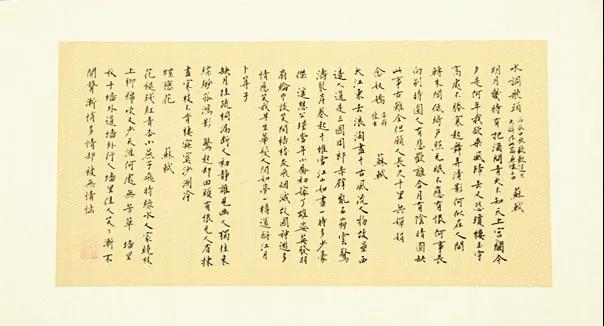 水調歌頭 丙辰中秋歡飲達旦大醉作此篇兼懷子由 蘇軾
明月幾時有把酒問青天不知天上宮闕今
夕是何年我欲乘風歸去又恐瓊樓玉宇
高處不勝寒起舞弄清影何似在人間
轉朱閣低綺户照無眠不應有恨何事長
向别時圓人有悲歡離合月有陰晴圓缺
此事古難全但願人長久千里共嬋娟
念奴嬌 赤壁懷古 蘇軾
大江東去浪淘盡千古風流人物故壘西
邊人道是三國周郎赤壁亂石崩雲驚
濤裂岸卷起千堆雪江山如畫一時多少豪
傑遥想公瑾當年小喬初嫁了雄姿英發羽
扇綸巾談笑間檣櫓灰飛煙滅故國神遊多
情應笑我早生華髮人間如夢一樽還酹江月
卜算子
缺月挂疏桐漏斷人初静誰見幽人獨往來
縹緲孤鴻影 驚起却回頭有恨无人省揀
盡寒枝不肯棲寂寞沙洲冷
蝶戀花 蘇軾
花褪殘紅青杏小燕子飛時緑水人家繞枝
上柳綿吹又少天涯何處無芳草 墻里
秋千墻外道墻外行人墻里佳人笑笑々漸不
聞聲漸悄多情却被無情惱